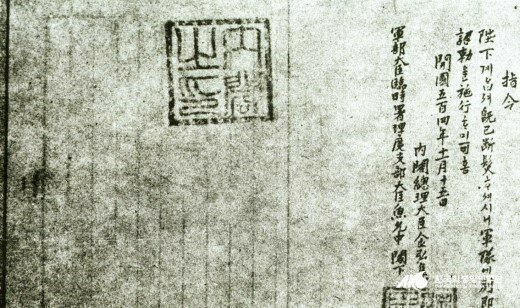 指令
陛下게
旣已斷髮
軍隊
詔勅을施行
開國五百四年十一月十五日
內閣總理大臣金弘集
軍部大臣臨時署理度支部大臣魚允中 閣下
內閣之印
한국학중앙연구원